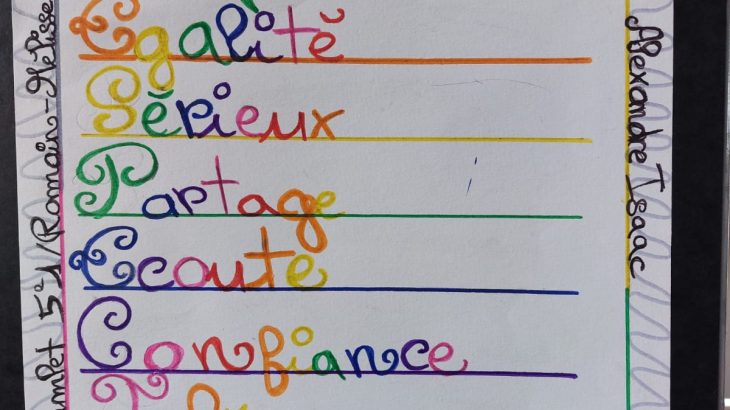 Egalité
Sérieux
Partage
Ecoute
Confiance
Alexandre Isaac
Romain - Mélisse